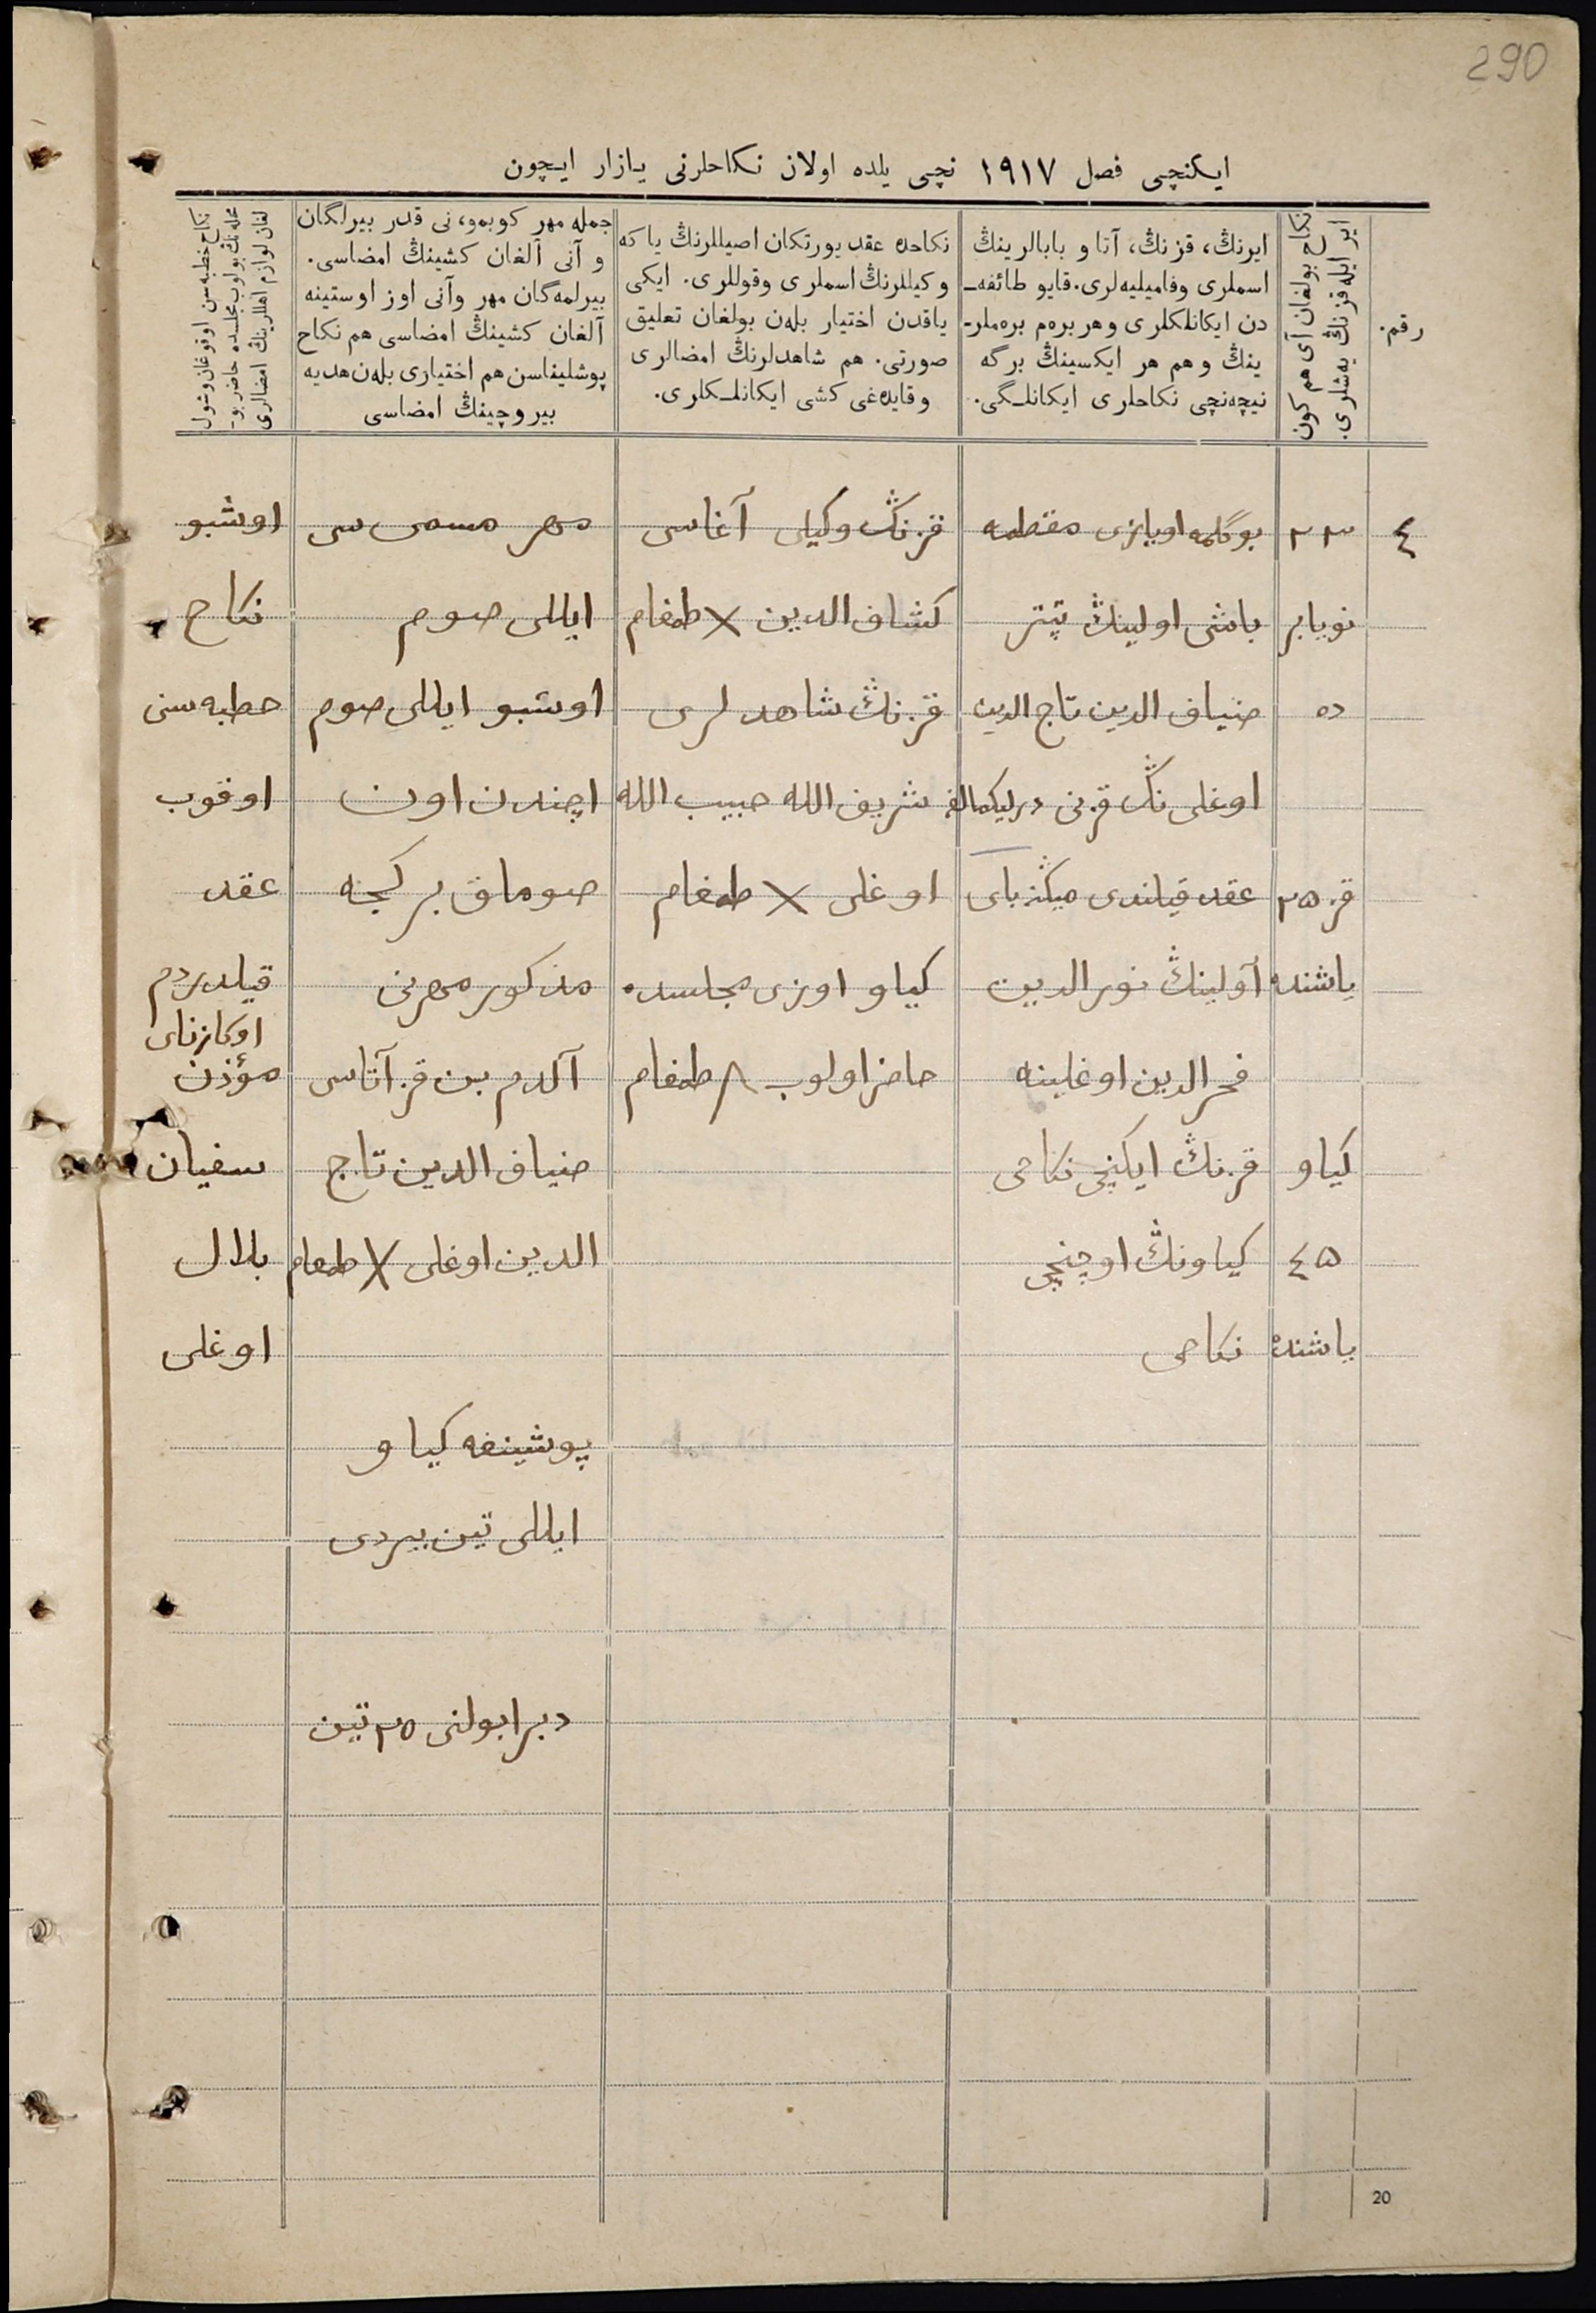 290
ایکنچی فصل ١٩١٧ نچی یلده اولان نکاحلرنی یازار ایچون
رقم.
نکاح بولغان آی هم کون
ایر ایله قزنڭ یەشلری.
ایرنڭ، قزنڭ، آتا و بابالرینڭ
اسملری وفامیلیەلری. قایو طائفه‌ـ
دن ایکانلکلری و هر بره‌م بره‌ملر-
ینڭ و هم هر ایکسینڭ برگه
نیچه‌نچی نکاحلری ایکانلـگی.
نکاحده عقد یورتکان اصیللرنڭ یا که
وکیللرنڭ اسملری وقوللری. ایکی
یاقدن اختیار بله‌ن بولغان تعلیق
صورتی. هم شاهدلرنڭ امضالری
وقایده‌غی کشی ایکانلـکلری.
جمله مهر کوبمو، نی قدر بیرلگان
و آنی آلغان کشینڭ امضاسی.
بیرلمه‌گان مهر وآنی اوز اوستینه
آلغان کشینڭ امضاسی هم نکاح
پوشلیناسن هم اختیاری بله‌ن هدیه
بیروچینڭ امضاسی
نکاح خطبه سن اوقوغان وشول
محله‌نڭ بولوب مجلسده حاضر بو-
لغان لوازم اهللرینڭ امضالری
٤
٢٣
نویابر
ده
قز ٢٥
یاشنده
کیاو
٤٥
یاشنده
بوگلمه اویازی مقطمه
باشی اولینڭ تپتر
ضیاف الدین تاج الدین
اوغلی نڭ قزنی
عقد قیلندی میڭنه بای
آولینڭ نورالدین
فخرالدین اوغلینه
قزنڭ ایکنچی نکاحی
کیاونڭ اوچنچی
نکاحی
قزنڭ وکیلی آغاسی
کشاف الدین X طمغام
قزنڭ شاهدلری
شریف الله حبیب الله
اوغلی X طمغام
کیاو اوزی مجلسده
حاضر اولوب طمغام
مهر مسمی سی
ایللی صوم
اوشبو ایللی صوم
اچندن اون
صوماق بر کجنه
مذکور مهرنی
آلدم بن قز آتاسی
ضیاف الدین تاج
الدین اوغلی X طمغام
پوشینغه کیاو
ایللی تین بیردی
دبرابولنی ٢٥ تین
اوشبو
نکاح
خطبه سنی
اوقوب
عقد
قیلدردم
اوکازنای
مؤذن
سفیان
بلال
اوغلی
20